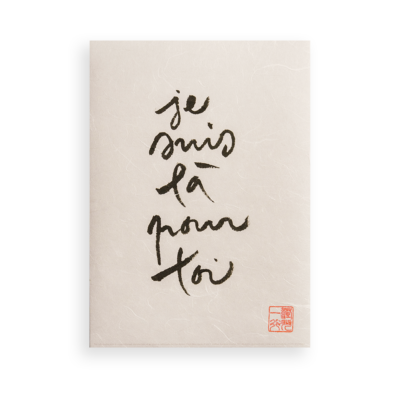 je
suis
là
pour
toi